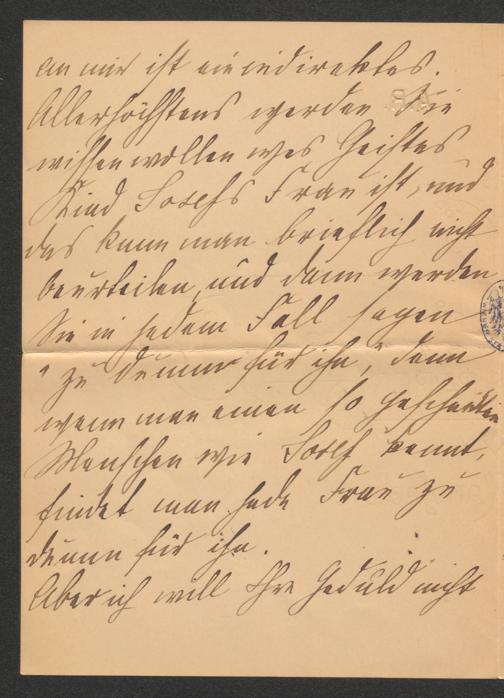 an mir ist ein indirektes.
Allerhöchstens werden Sie
wissen wollen wes Geistes
Kind Josefs Frau ist, und
das kann man brieflich nicht
beurteilen, und dann werden
Sie in jedem Fall sagen
"zu dumm für ihn", denn
wenn man einen so gescheuten
Menschen wie Josef kennt,
findet man jede Frau zu
dumm für ihn.
Aber ich will Ihre Geduld nicht